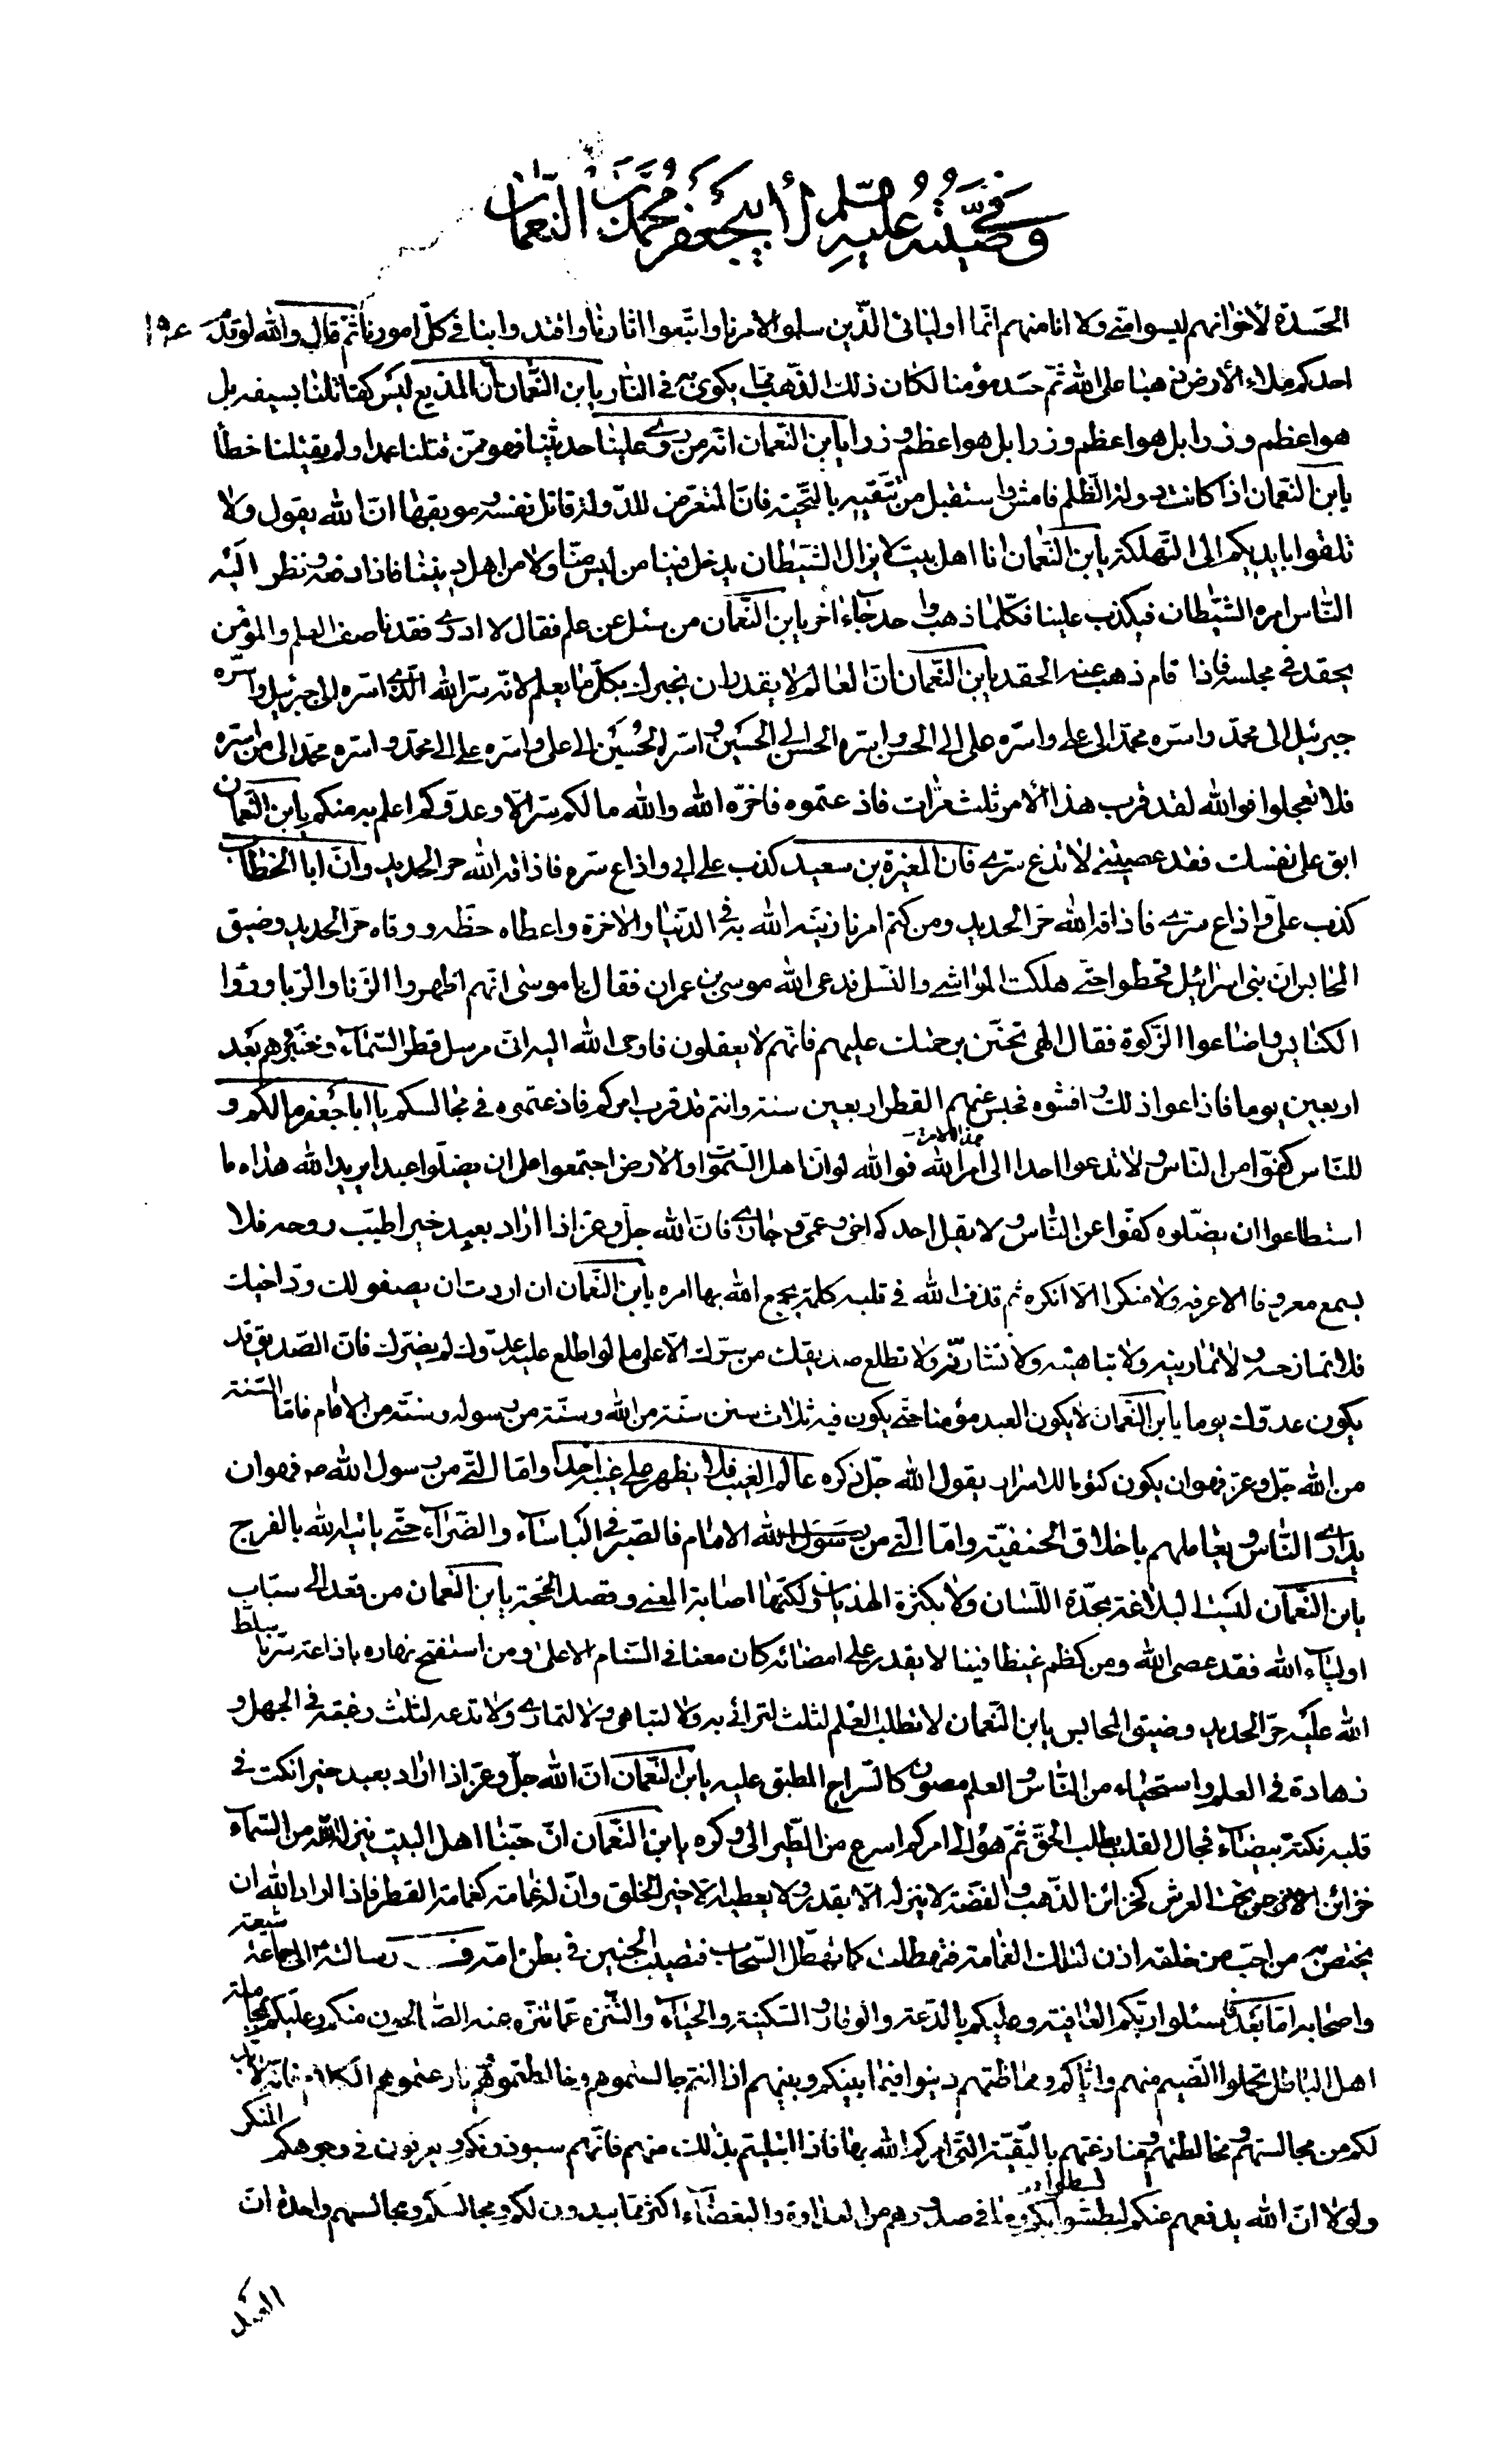 وصيته عليه السلم لأبي جعفر محمد بن النعمان
الحسدة لأخوانهم ليسوا مني ولا انا منهم انما اوليائي الذين سلموا لأمرنا واتبعوا اثارنا واقتدوا بنا في كل امورنا ثم قال والله لو قدم
احدكم ملاء الأرض ذهبا على الله ثم حسد مؤمنا لكان ذلك الذهب مما يكوى به في النار يا بن النعمان ان المذيع ليس كقاتلنا بسيفه بل
هو اعظم وزرا بل هو اعظم وزرا بل هو اعظم وزرا يا بن النعمان انه من روى علينا حديثنا فهو ممن قتلنا عمدا ولم يقتلنا خطأ
يا بن النعمان اذا كانت دولة الظلم فامش واستقبل من تتقيه بالتحية فان المتعرض للدولة قاتل نفسه وموبقها ان الله يقول ولا
تلقوا بايديكم الى التهلكة يا بن النعمان انا اهل بيت لا يزال الشيطان يدخل فينا من ليس منا ولا من اهل ديننا فاذا رفعه ونظر اليه
الناس امره الشيطان فيكذب علينا فكلما ذهب واحد جاء اخر يا بن النعمان من سئل عن علم فقال لا ادري فقد ناصف العلم والمؤمن
يحقد في مجلسه فاذا قام ذهب عنه الحقد يا بن النعمان ان العالم لا يقدر ان يخبرك بكل ما يعلم لانه سر الله الذي اسره الى جبرئيل واسره
جبرئيل الى محمد واسره محمد الى علي واسره علي الى الحسن واسره الحسن الى الحسين واسره الحسين الى علي واسره علي الى محمد واسره محمد الى من اسره
فلا تعجلوا فوالله لقد قرب هذا الأمر ثلث مرات فاذعتموه فاخره الله والله ما لكم سر الا وعدوكم اعلم به منكم يا بن النعمان
ابق على نفسك فقد عصيتني لا تذع سري فان المغيرة بن سعيد كذب على ابي واذاع سره فاذاقه الله حر الحديد وان ابا الخطاب
كذب علي واذاع سري فاذاقه الله حر الحديد ومن كتم امرنا زينه الله به في الدنيا والاخرة واعطاه حظه ووقاه حر الحديد وضيق
المحابس ان بني اسرائيل قحطوا حتى هلكت المواشي والنسل فدعى الله موسى بن عمران فقال يا موسى انهم اظهروا الزنا والربا وعمروا
الكنايس واضاعوا الزكوة فقال الهي تحنن برحمتك عليهم فانهم لا يعقلون فاوحى الله اليه اني مرسل قطر السماء ومختبرهم بعد
اربعين يوما فاذاعوا ذلك وافشوه فحبس عنهم القطر اربعين سنة وانتم قد قرب امركم فاذعتموه في مجالسكم يا ابا جعفر ما لكم و
للناس كفوا من الناس ولا تدعوا احدا الى امر الله فوالله لو ان اهل السموات والارض اجتمعوا على ان يضلوا عبدا يريد الله هداه ما
هذا الامر
استطاعوا ان يضلوه كفوا عن الناس ولا يقل احدكم اخي وعمي وجاري فان الله جل وعز اذا اراد بعبد خيرا طيب روحه فلا
يسمع معروفا الا عرفه ولا منكرا الا انكره ثم قذف الله في قلبه كلمة يجمع الله بها امره يا بن النعمان ان اردت ان يصفو لك ود اخيك
فلا تمازحنه ولا تمارينه ولا تباهينه ولا تشارنه ولا تطلع صديقك من سرك الا على ما لو اطلع عليه عدوك لم يضرك فان الصديق قد
يكون عدوك يوما يا بن النعمان لا يكون العبد مؤمنا حتى يكون فيه ثلاث سنن سنة من الله وسنة من رسوله وسنة من الامام فاما السنة
من الله جل وعز فهو ان يكون كتوما للاسرار يقول الله جل ذكره عالم الغيب فلا يظهر على غيبه احدا واما التي من رسول الله ص فهو ان
يداري الناس ويعاملهم باخلاق الحنفية واما التي من رسول الله الامام فالصبر في البأساء والضراء حتى ياتيه الله بالفرج
يا بن النعمان ليست البلاغة بحدة اللسان ولا بكثرة الهذيان ولكنها اصابة المعنى وقصد الحجة يا بن النعمان من قعد الى سباب
اولياء الله فقد عصى الله ومن كظم غيظا فينا لا يقدر على امضائه كان معنا في السنام الاعلى ومن استفتح نهاره باذاعة سرنا سلط
الله عليه حر الحديد وضيق المحابس يا بن النعمان لا تطلب العلم لثلث لترائي به ولا لتباهي ولا لتماري ولا تدعه لثلث رغبة في الجهل و
زهادة في العلم واستحياء من الناس والعلم مصون كالسراج المطبق عليه يا بن النعمان ان الله جل وعز اذا اراد بعبد خيرا نكت في
قلبه نكتة بيضاء فجال القلب يطلب الحق ثم هو الى امركم اسرع من الطير الى وكره يا بن النعمان ان حبنا اهل البيت ينزله الله من السماء
خزائن تحت العرش كخزائن الذهب والفضة لا ينزله الا بقدر ولا يعطيه الا خير الخلق وان له غمامة كغمامة القطر فاذا اراد الله ان
يختص به من احب من خلقه اذن لتلك الغمامة فتهطلت كما تهطل السحاب فتصيب الجنين في بطن امه رسالته الى جماعة شيعته
واصحابه اما بعد فاسئلوا ربكم العافية وعليكم بالدعة والوقار والسكينة والحياء والتنزه عما تنزه عنه الصالحون منكم وعليكم بمجاملة
اهل الباطل تحملوا الضيم منهم واياكم ومماظتهم دينوا فيما بينكم وبينهم اذا انتم جالستموهم وخالطتموهم ونازعتموهم الكلام فانه لا بد
لكم من مجالستهم ومخالطتهم ومنازعتهم بالتقية التي امركم الله بها فاذا ابتليتم بذلك منهم فانهم سيوذونكم ويعرفون في وجوهكم المنكر
ولولا ان الله يدفعهم عنكم لبطشوا بكم وما في صدورهم من العداوة والبغضاء اكثر مما يبدون لكم ومجالسكم ومجالسهم واحدة ان